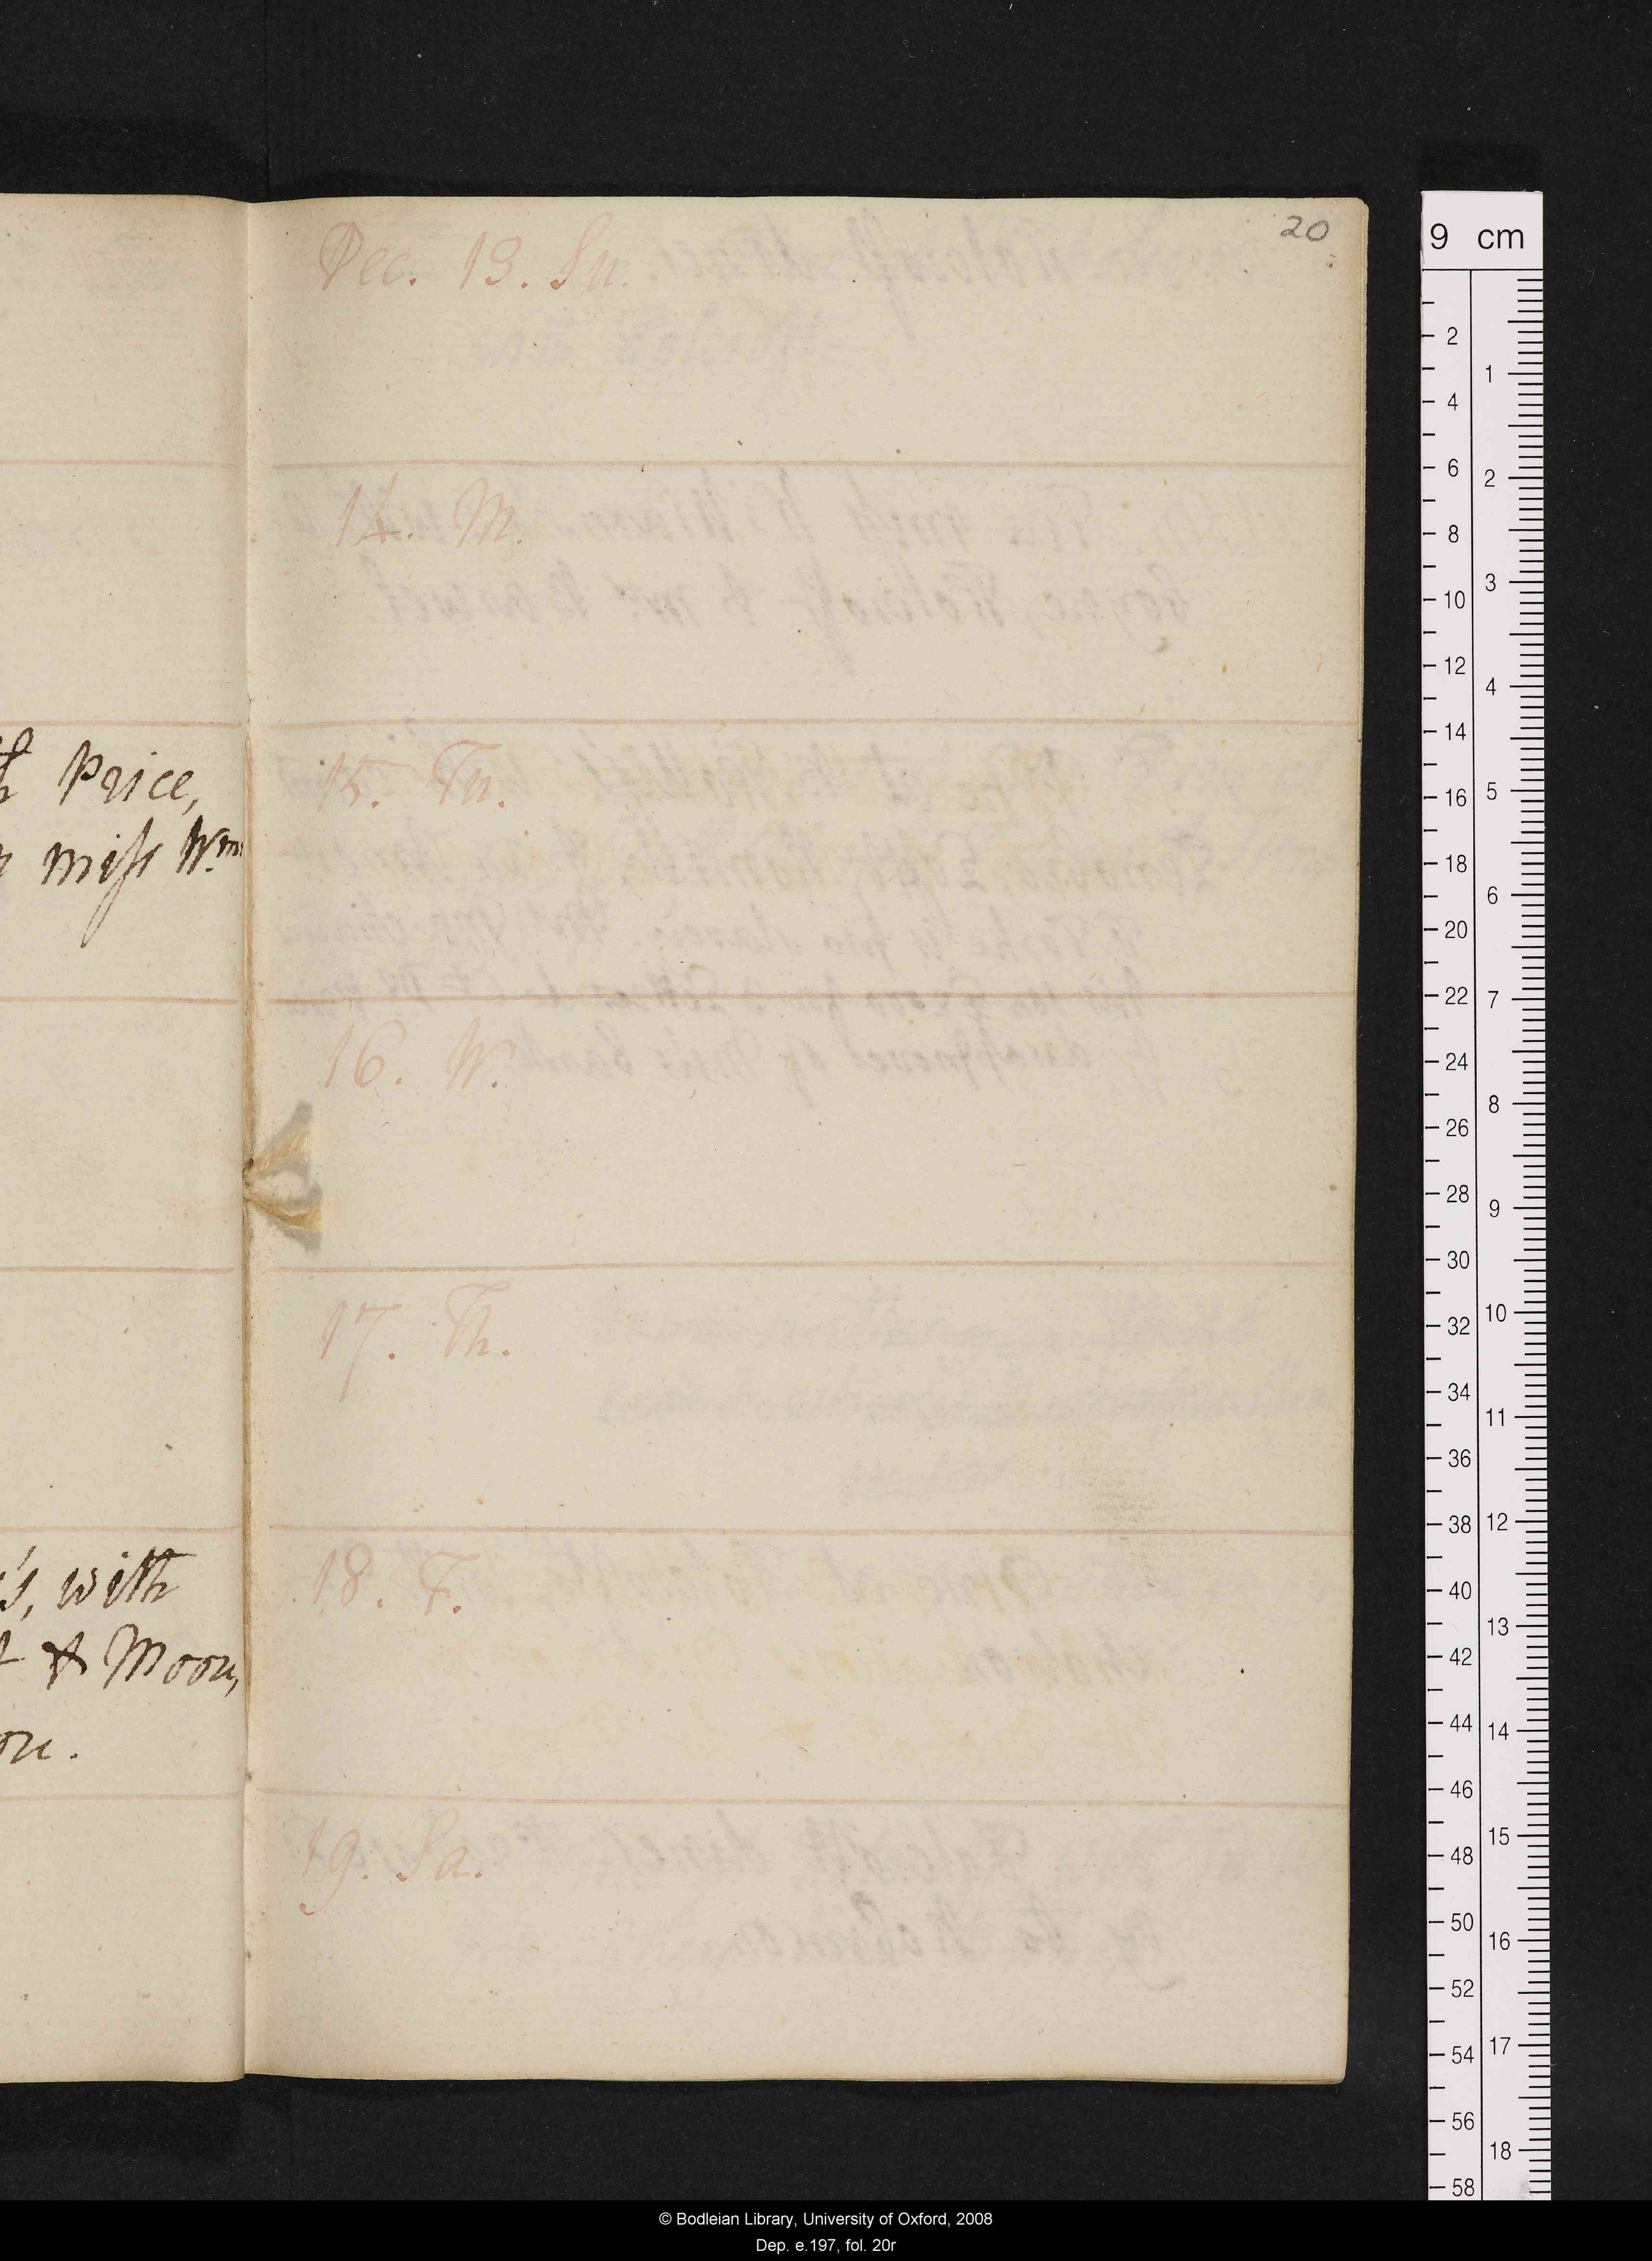 th Price,
miss Wms
's, with
& Moon,
on.
20
Dec. 13. Su.
14. M.
15. Tu.
16. W.
17. Th.
18. F.
19. Sa.
9 cm
2
4
6
8
10
12
14
16
18
20
22
24
26
28
30
32
34
36
38
40
42
44
46
48
50
52
54
56
58
1
2
3
4
5
6
7
8
9
10
11
12
13
14
15
16
17
18
© Bodleian Library, University of Oxford, 2008
Dep. e.197, fol. 20r